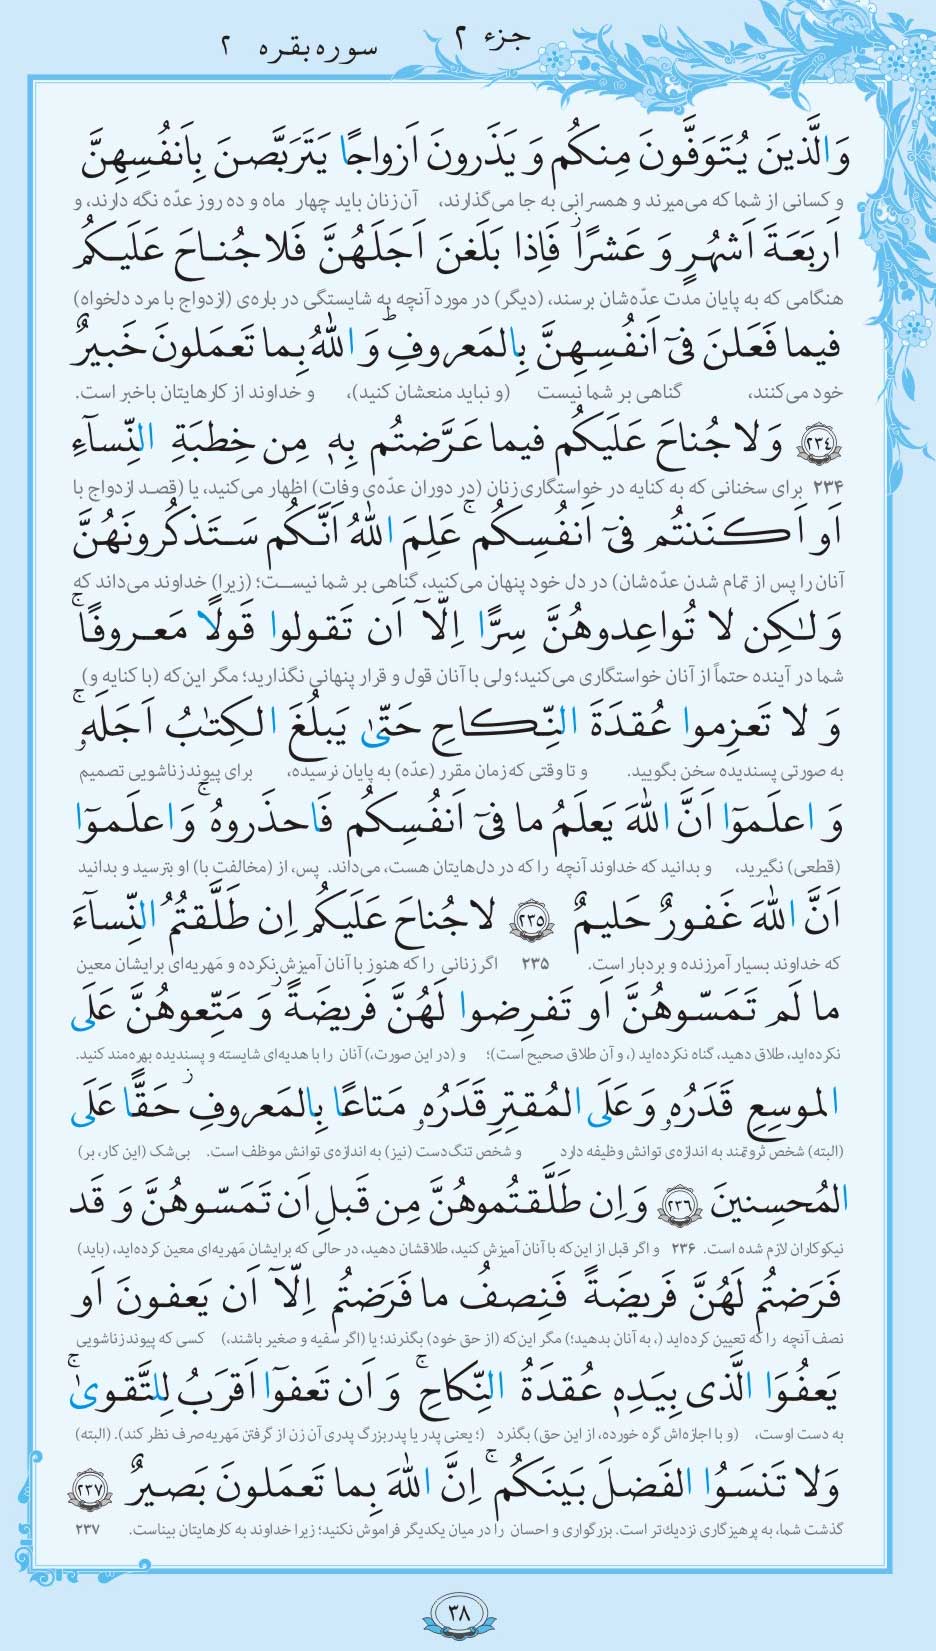 جزء ٢
سوره بقره ٢
وَالَّذینَ یُتَوَفَّونَ مِنکُم وَ یَذَرونَ اَزواجًا یَتَرَبَّصنَ بِاَنفُسِهِنَّ
و کسانی از شما که می‌میرند و همسرانی به جا می‌گذارند، آن زنان باید چهار ماه و ده روز عدّه نگه دارند، و
اَربَعَةَ اَشهُرٍ وَ عَشرًاۖ فَاِذا بَلَغنَ اَجَلَهُنَّ فَلا جُناحَ عَلَیکُم
هنگامی که به پایان مدت عدّه‌شان برسند، (دیگر) در مورد آنچه به شایستگی در باره‌ی (ازدواج با مرد دلخواه)
فیما فَعَلنَ فیٓ اَنفُسِهِنَّ بِالمَعروفِؕ وَ اللّٰهُ بِما تَعمَلونَ خَبیرٌ
خود می‌کنند، گناهی بر شما نیست (و نباید منعشان کنید)، و خداوند از کارهایتان باخبر است.
﴿٢٣٤﴾ وَلا جُناحَ عَلَیکُم فیما عَرَّضتُم بِهٖ مِن خِطبَةِ النِّسآءِ
۲۳۴ برای سخنانی که به کنایه در خواستگاری زنان (در دوران عدّه‌ی وفات) اظهار می‌کنید، یا (قصد ازدواج با
اَو اَکنَنتُم فیٓ اَنفُسِکُمۚ عَلِمَ اللّٰهُ اَنَّکُم سَتَذکُرونَهُنَّ
آنان را پس از تمام شدن عدّه‌شان) در دل خود پنهان می‌کنید، گناهی بر شما نیست؛ (زیرا) خداوند می‌داند که
وَلٰکِن لا تُواعِدوهُنَّ سِرًّا اِلّآ اَن تَقولوا قَولًا مَعروفًاۚ
شما در آینده حتماً از آنان خواستگاری می‌کنید؛ ولی با آنان قول و قرار پنهانی نگذارید؛ مگر این‌که (با کنایه و)
وَ لا تَعزِموا عُقدَةَ النِّکاحِ حَتّیٰ یَبلُغَ الکِتٰبُ اَجَلَهٗۚ
به صورتی پسندیده سخن بگویید. و تا وقتی که زمان مقرر (عدّه) به پایان نرسیده، برای پیوند زناشویی تصمیم
وَ اعلَموٓا اَنَّ اللّٰهَ یَعلَمُ ما فیٓ اَنفُسِکُم فَاحذَروهُۚ وَ اعلَموٓا
(قطعی) نگیرید، و بدانید که خداوند آنچه را که در دل‌هایتان هست، می‌داند. پس، از (مخالفت با) او بترسید و بدانید
اَنَّ اللّٰهَ غَفورٌ حَلیمٌ ﴿٢٣٥﴾ لا جُناحَ عَلَیکُم اِن طَلَّقتُمُ النِّسآءَ
که خداوند بسیار آمرزنده و بردبار است. ۲۳۵ اگر زنانی را که هنوز با آنان آمیزش نکرده و مَهریه‌ای برایشان معین
ما لَم تَمَسّوهُنَّ اَو تَفرِضوا لَهُنَّ فَریضَةًۚ وَ مَتِّعوهُنَّ عَلَی
نکرده‌اید، طلاق دهید، گناه نکرده‌اید (، و آن طلاق صحیح است)؛ و (در این صورت،) آنان را با هدیه‌ای شایسته و پسندیده بهره‌مند کنید.
الموسِعِ قَدَرُهٗ وَ عَلَی المُقتِرِ قَدَرُهٗ مَتاعًا بِالمَعروفِۖ حَقًّا عَلَی
(البته) شخص ثروتمند به اندازه‌ی توانش وظیفه دارد و شخص تنگ‌دست (نیز) به اندازه‌ی توانش موظف است. بی‌شک (این کار، بر)
المُحسِنینَ ﴿٢٣٦﴾ وَ اِن طَلَّقتُموهُنَّ مِن قَبلِ اَن تَمَسّوهُنَّ وَ قَد
نیکوکاران لازم شده است. ۲۳۶ و اگر قبل از این‌که با آنان آمیزش کنید، طلاقشان دهید، در حالی که برایشان مَهریه‌ای معین کرده‌اید، (باید)
فَرَضتُم لَهُنَّ فَریضَةً فَنِصفُ ما فَرَضتُم اِلّآ اَن یَعفونَ اَو
نصف آنچه را که تعیین کرده‌اید (، به آنان بدهید؛) مگر این‌که (از حق خود) بگذرند؛ یا (اگر سفیه و صغیر باشند،) کسی که پیوند زناشویی
یَعفُوَا الَّذی بِیَدِهٖ عُقدَةُ النِّکاحِۚ وَ اَن تَعفوٓا اَقرَبُ لِلتَّقویٰۚ
به دست اوست، (و با اجازه‌اش گره خورده، از این حق) بگذرد (؛ یعنی پدر یا پدربزرگ پدری آن زن از گرفتن مَهریه صرف نظر کند). (البته)
وَلا تَنسَوُا الفَضلَ بَینَکُمۚ اِنَّ اللّٰهَ بِما تَعمَلونَ بَصیرٌ ﴿٢٣٧﴾
گذشت شما، به پرهیزگاری نزدیک‌تر است. بزرگواری و احسان را در میان یکدیگر فراموش نکنید؛ زیرا خداوند به کارهایتان بیناست. ۲۳۷
٣٨